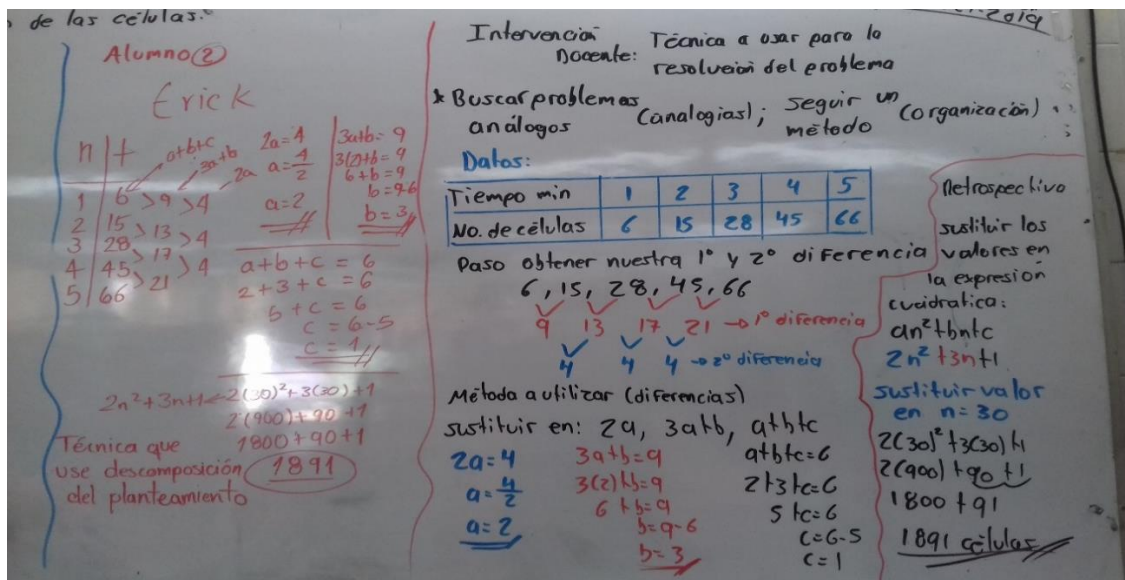 de las células."
2019
Alumno ②
Erick
n | t
a+b+c
3a+b
2a
1 | 6 > 9 > 4
2 | 15 > 13 > 4
3 | 28 > 17 > 4
4 | 45 > 21
5 | 66
2a=4
a=4/2
a=2
3a+b=9
3(2)+b=9
6+b=9
b=9-6
b=3
a+b+c=6
2+3+c=6
5+c=6
c=6-5
c=1
2n²+3n+1 2(30)²+3(30)+1
2(900)+90+1
1800+90+1
1891
Técnica que
use descomposición
del planteamiento
Intervención
Docente:
Técnica a usar para la
resolución del problema
* Buscar problemas
análogos
(analogías); seguir un
método
(organización)
Datos:
Tiempo min | 1 | 2 | 3 | 4 | 5
No. de células | 6 | 15 | 28 | 45 | 66
Paso obtener nuestra 1° y 2° diferencia
6, 15, 28, 45, 66
9 13 17 21 → 1° diferencia
4 4 4 → 2° diferencia
Método a utilizar (diferencias)
sustituir en: 2a, 3a+b, a+b+c
2a=4
a=4/2
a=2
3a+b=9
3(2)+b=9
6+b=9
b=9-6
b=3
a+b+c=6
2+3+c=6
5+c=6
c=6-5
c=1
Retrospectiva
sustituir los
valores en
la expresión
cuadratica:
an²+bn+c
2n²+3n+1
sustituir valor
en n=30
2(30)²+3(30)+1
2(900)+90+1
1800+91
1891 células